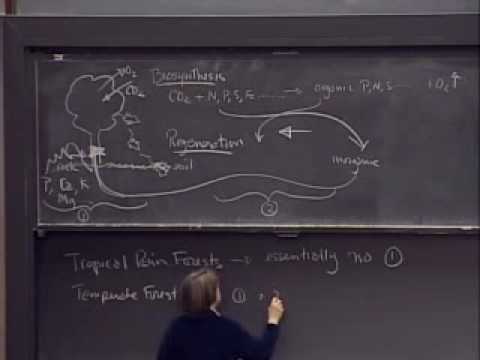 O2 Biosynthesis
CO2 CO2 + N, P, S, Fe → organic P, N, S O2 ↑
Regeneration
rock soil inorganic
P, Ca, K
Mg
① ②
Tropical Rain Forests → essentially no ①
Temperate Forest ①